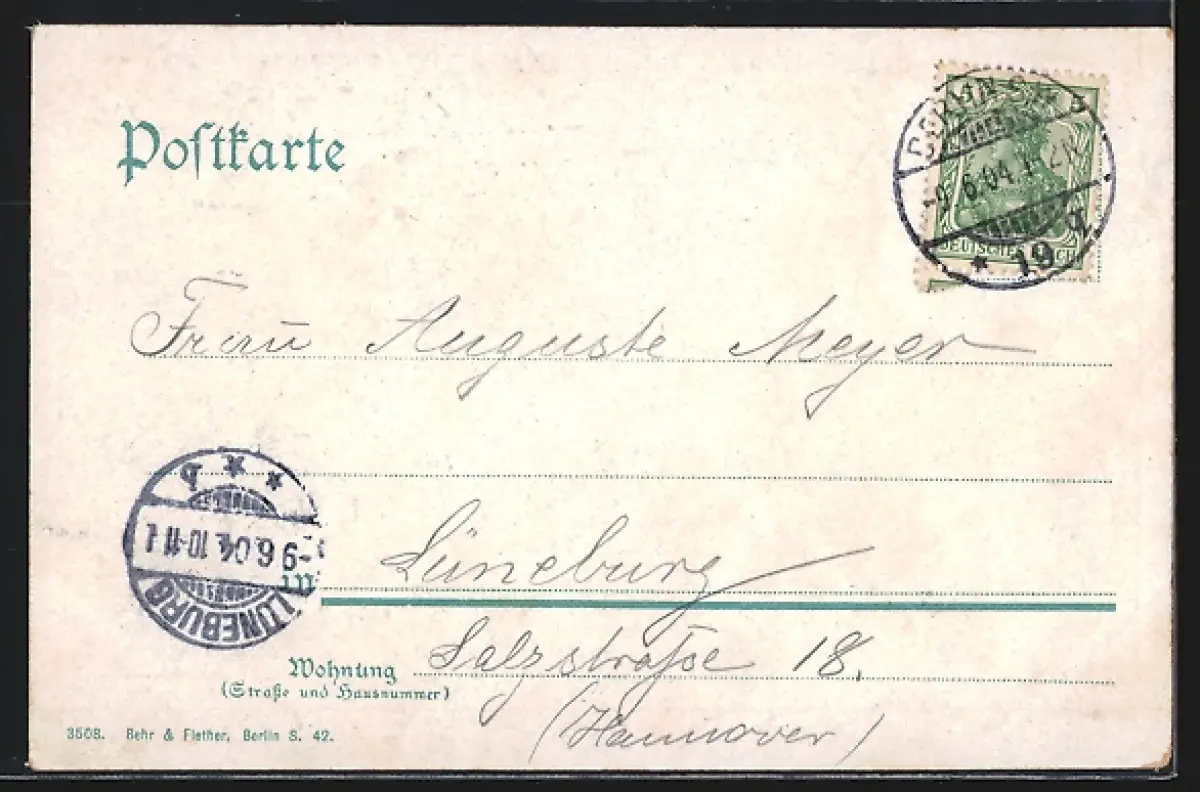 Postkarte
DEUTSCHES REICH
6.04.
* 19 q
Frau Auguste Meyer
b * *
-9.6.04. 10-11
LÜNEBURG
in Lüneburg
Salzstraße 18.
Wohnung
(Straße und Hausnummer)
(Hannover)
3508. Behr & Flether, Berlin S. 42.